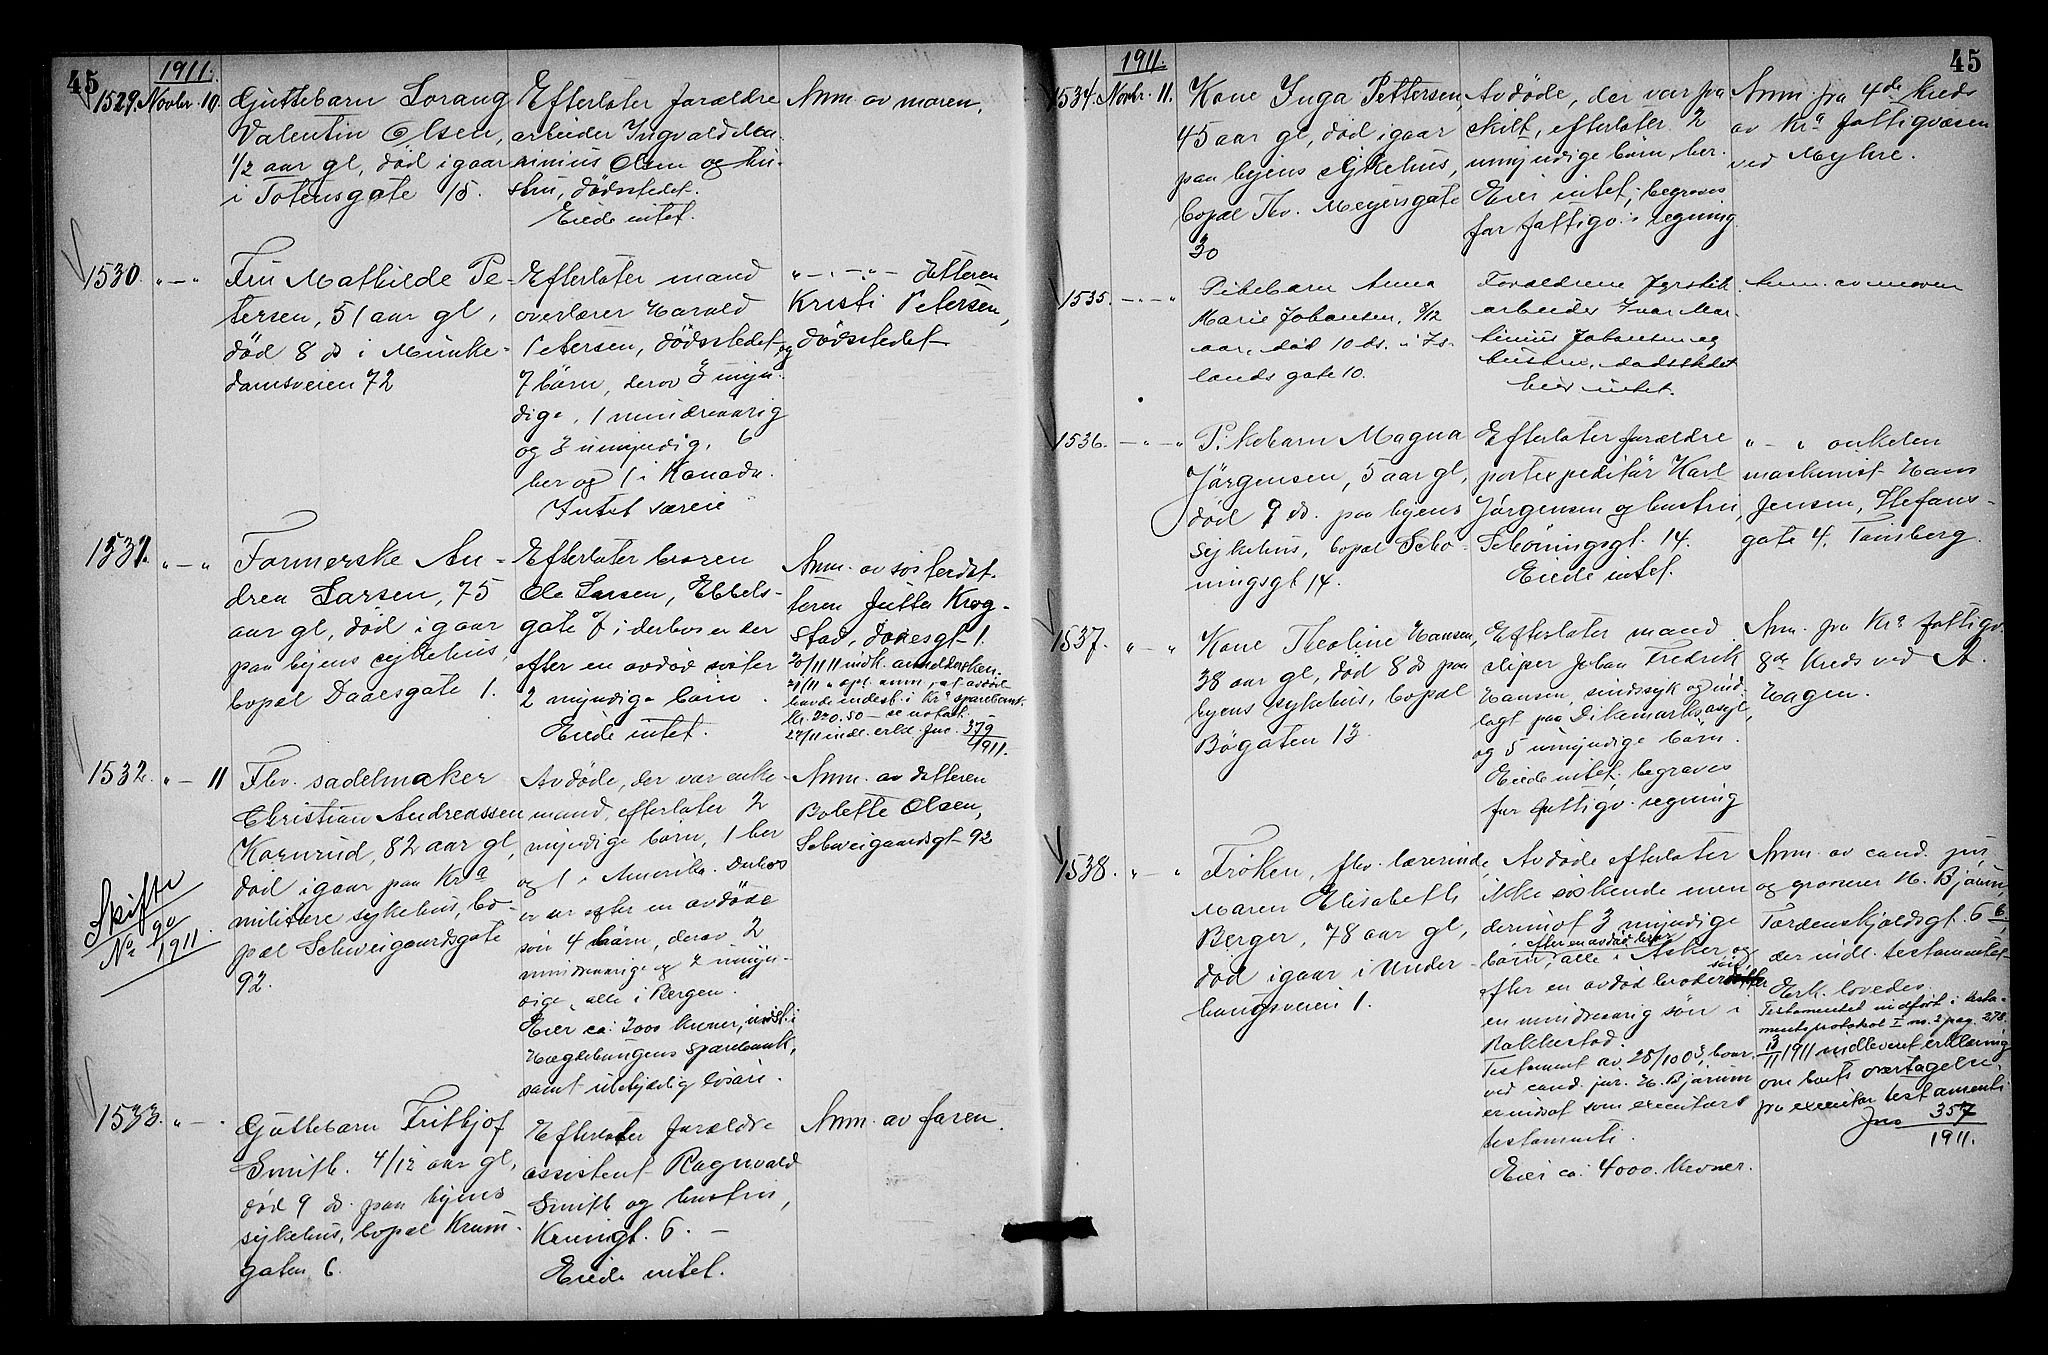 45
1911.
1529. Novbr. 10.
Guttebarn Lorang
Valentin Olsen,
1/2 aar gl, död igaar
i Totensgate 15.
Efterlater forældre
arbeider Ingvald Ma-
rinius Olsen og hu-
stru, dödsstedet.
Eiede intet.
Anm. av moren,
1530. " — "
Fru Mathilde Pe-
tersen, 51 aar gl,
död 8 ds i Munke-
damsveien 72
Efterlater mand
overlærer Harald
Petersen, dödsstedet og
7 börn, derav 3 myn-
dige, 1 mindreaarig
og 3 umyndig, 6
her og 1 i Kanada.
Intet særeie
" — " — datteren
Kristi Petersen,
dödsstedet
1531. " — "
Farmerske An-
drea Larsen, 75
aar gl, död igaar
paa byens sykehus,
bopæl Daaesgate 1.
Efterlater broren
Ole Larsen, Ebbels-
gate 7 i derhos er der
efter en avdöd söster
2 myndige börn.
Eiede intet.
Anm. av sösterdat-
teren Jutta Krog-
stad, Daaesgt 1.
20/11 11 indk. anmeldersken.
21/11 " opl. anm., at avdöde
havde indest. i Kra sparebank
kr. 220,50 — se notat.
27/11 indl. erkl. Jno. 379/1911.
1532. " — 11
Fhv. sadelmaker
Christian Andreassen
Kornrud, 82 aar gl,
död igaar paa Kra
militære sykehus, bo-
pæl Schweigaardsgate
92.
Skifte
No 90
1911.
Avdöde, der var enke-
mand, efterlater 2
myndige börn, 1 her
og 1 i Amerika. Derhos
er der efter en avdöde
sön 4 börn, derav 2
mindreaarige og 2 umyn-
dige, alle i Bergen.
Eier ca: 2000 kroner, indst. i
Hægdehaugens Sparebank,
samt ubetydelig lösöre.
Anm. av datteren
Bolette Olsen,
Schweigaardsgt 92
1533. " —
Guttebarn Fritbjof
Smith. 4/12 aar gl,
död 9 ds. paa byens
sykehus, bopæl Krum-
gaten 6.
Efterlater forældre
assistent Ragnvald
Smith og hustru,
Krumgt. 6. —
Eiede intet.
Anm. av faren.
45
1911.
1534. Novbr. 11.
Kone Inga Pettersen,
45 aar gl, död igaar
paa byens sykehus,
bopæl Thv. Meyersgate
30
Avdöde, der var fra
skilt, efterlater 2
umyndige börn, her.
Eier intet; begraves
for fattigv:s regning
Anm. fra 4de kreds
av Kra fattigvæsen
ved Myhre.
1535. — " — "
Pikebarn Anna
Marie Johansen, 8/12
aar, död 10 ds. i Is-
lands gate 10.
Forældrene
arbeider Ivar Mar-
tinius Johansen og
hustru, dödsstedet
Eier intet.
Anm. av moren
1536. — " — "
Pikebarn Magna
Jörgensen, 5 aar gl,
död 9 ds. paa byens
sykehus, bopæl Schö-
ningsgt 14.
Efterlater forældre
postexpeditör Karl
Jörgensen og hustru,
Schöningsgt. 14.
Eiede intet.
" — " onkelen
maskinist Hans
Jensen, Stefans-
gate 4, Tönsberg.
1537. " — "
Kone Theoline Hansen,
38 aar gl, död 8 ds paa
byens sykehus, bopæl
Bögaten 13
Efterlater mand
sliper Johan Fredrik
Hansen, sindssyk og ind-
lagt paa Dikemark asyl,
og 5 umyndige barn.
Eiede intet; begraves
for fattigv. regning
Anm. fra Kra fattigv.
8de Kreds ved A.
Hagen.
1538. " — "
Fröken, fhv. lærerinde,
Maren Elisabeth
Berger, 78 aar gl,
död igaar i Under-
haugsveien 1.
Avdöde efterlater
ikke söskende men
derimot 3 myndige
börn, efter en avdöd bror alle i Asker, og
efter en avdöd broders sön,
en mindreaarig sön i
Rakkestad.
Testament av 25/10 03, hvor-
ved cand. jur. H. Bjørum
er indsat som executor
testamenti.
Eier ca: 4000. kroner.
Anm. av cand. jur.
og grosserer H. Bjørum,
Tordenskjoldsgt. 6 b,
der indl. testamentet
Erk. lovedes
Testamentet indfört i testa-
mentsprotokol I no. 2 pag. 278.
13/11 1911 indleveret erklæring
om boets overtagelse
fra executor testamenti
Jno 357
1911.